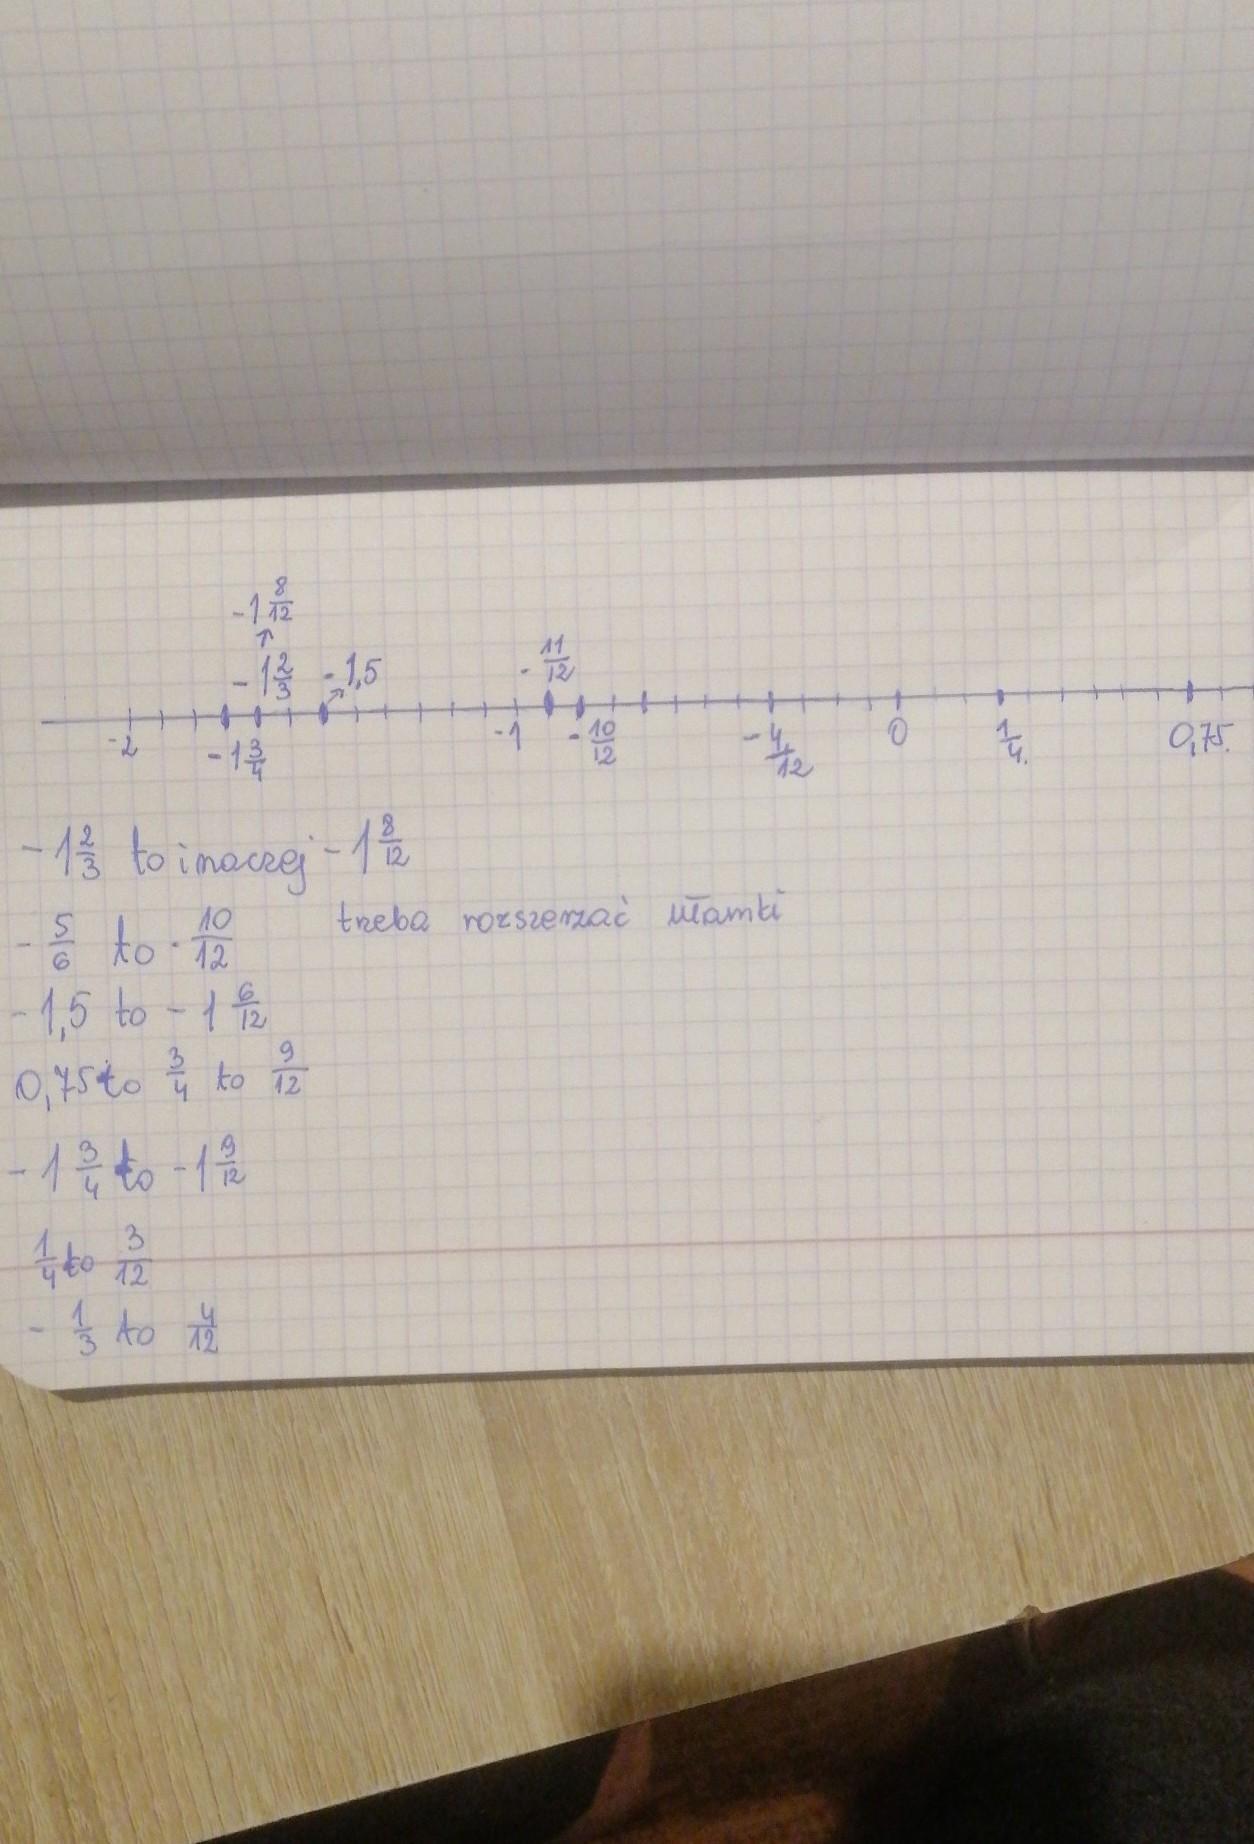 -1 8/12
-1 2/3 -1,5 -11/12
-2 -1 3/4 -1 -10/12 -4/12 0 1/4. 0,75.
-1 2/3 to inaczej -1 8/12
-5/6 to -10/12 trzeba rozszerzać ułamki
-1,5 to -1 6/12
0,75 to 3/4 to 9/12
-1 3/4 to -1 9/12
1/4 to 3/12
-1/3 to 4/12